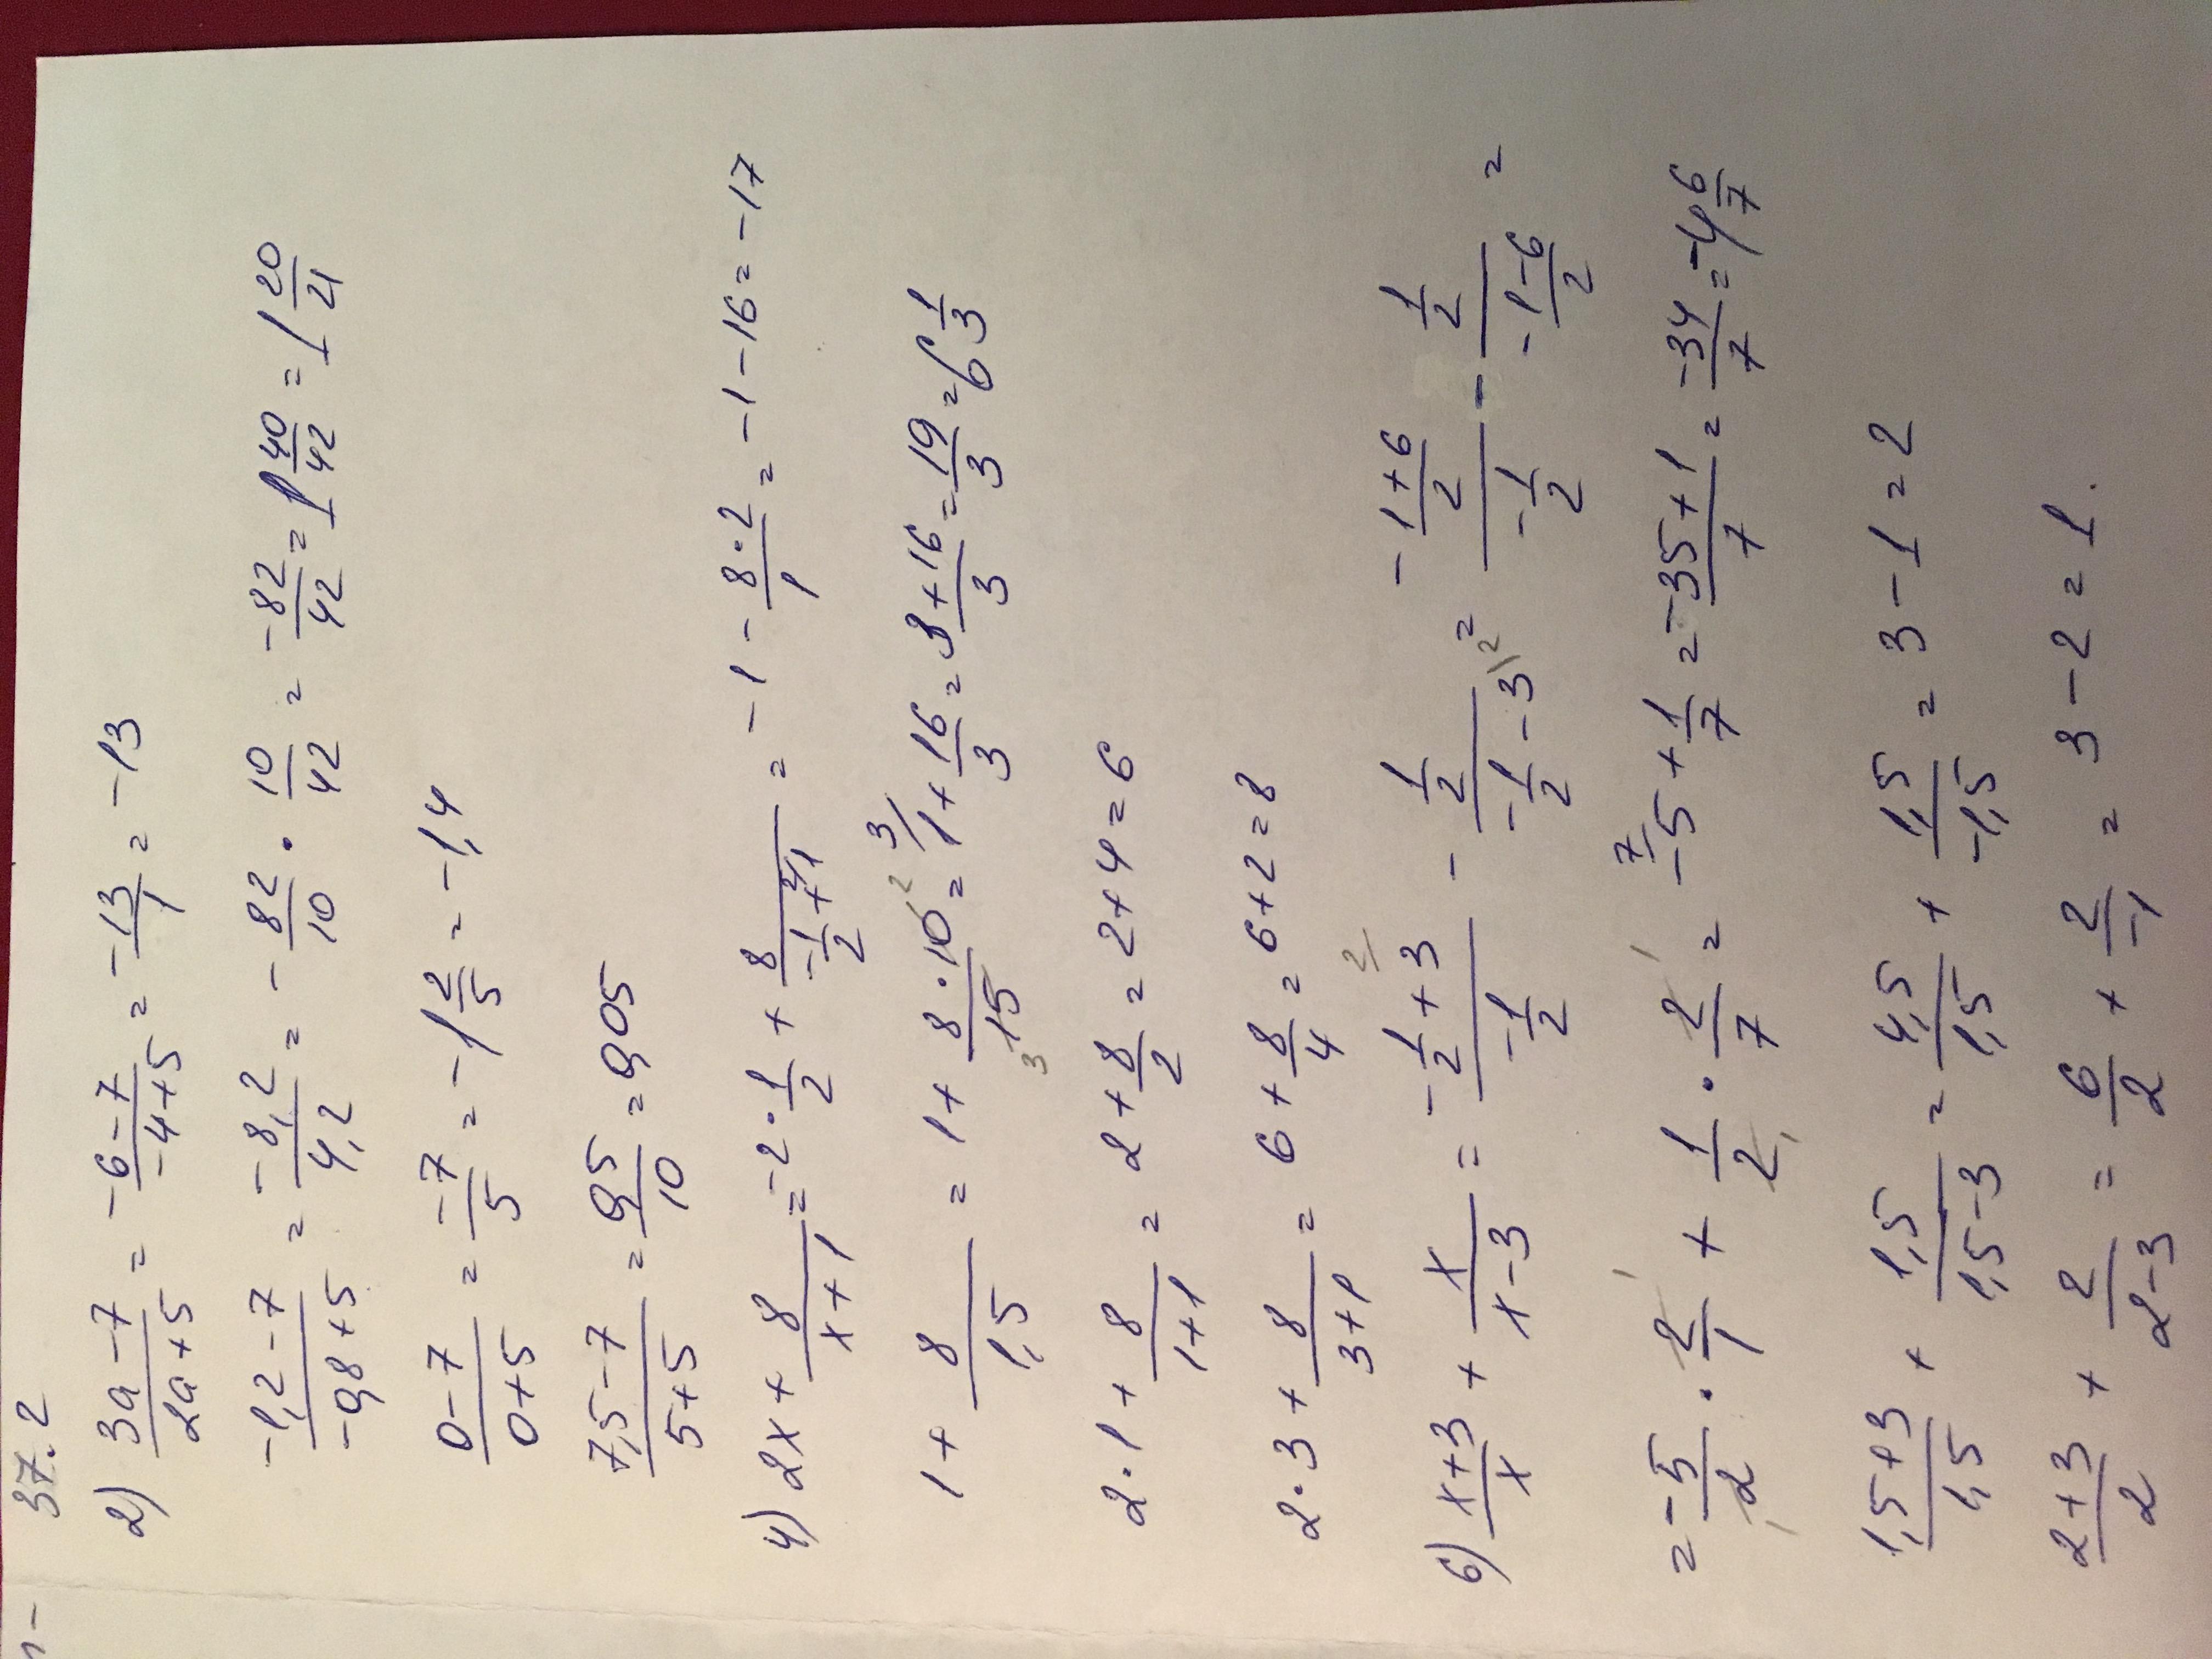 37.2
2) (3a-7)/(2a+5) = (-6-7)/(-4+5) = -13/1 = -13
(-1,2-7)/(-0,8+5) = -8,2/4,2 = -82/10 · 10/42 = -82/42 = 1 40/42 = 1 20/21
(0-7)/(0+5) = -7/5 = -1 2/5 = -1,4
(7,5-7)/(5+5) = 0,5/10 = 0,05
4) 2x + 8/(x+1) = -2 · 1/2 + 8/(-1/2+1) = -1 - (8·2)/1 = -1-16 = -17
1 + 8/1,5 = 1 + (8·10)/15 = 1 + 16/3 = (3+16)/3 = 19/3 = 6 1/3
2·1 + 8/(1+1) = 2 + 8/2 = 2+4 = 6
2·3 + 8/(3+1) = 6 + 8/4 = 6+2 = 8
6) (x+3)/x + x/(x-3) = (-1/2+3)/(-1/2) - (1/2)/(-1/2-3) = (-(1+6)/2)/(-1/2) - (1/2)/(-(1-6)/2) =
= -5/2 · 2/1 + 1/2 · 2/7 = -5 + 1/7 = (-35+1)/7 = -34/7 = -4 6/7
(1,5+3)/1,5 + 1,5/(1,5-3) = 4,5/1,5 + 1,5/-1,5 = 3-1 = 2
(2+3)/2 + 2/(2-3) = 6/2 + 2/-1 = 3-2 = 1.